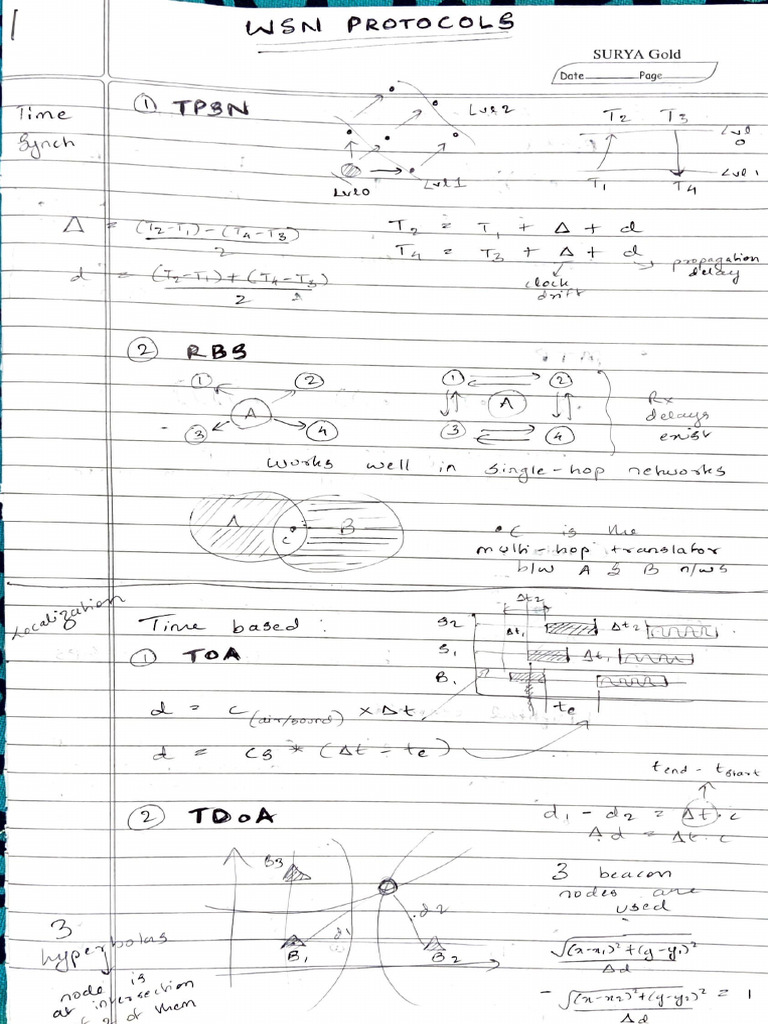 1
WSN PROTOCOLS
SURYA Gold
Date Page
Time
Synch
① TPSN
Lvl 2
Lvl 1
Lvl 0
T2 T3
Lvl 0
Lvl 1
T1 T4
Δ = (T2-T1)-(T4-T3) / 2
T2 = T1 + Δ + d
T4 = T3 + Δ + d
d = (T2-T1)+(T4-T3) / 2
clock
drift
propagation
delay
② RBS
1 2
A
3 4
1 2
A
3 4
Rx
delays
exist
Works well in single-hop networks
A C B
• C is the
multi-hop translator
b/w A & B n/ws
Localization
Time based :
① TOA
Δt2
S2 Δt2
Δt1
S1 Δt1
B1
tc
d = c (air/sound) × Δt
d = cs * (Δt - tc)
tend - tstart
② TDoA
d1 - d2 = Δt · c
Δd = Δt · c
B3
d1 d2
B1 B2
3 beacon
nodes are
used
3
hyperbolas
node is
at intersection
of them
√(x-x1)²+(y-y1)² / Δd
- √(x-x2)²+(y-y2)² / Δd = 1